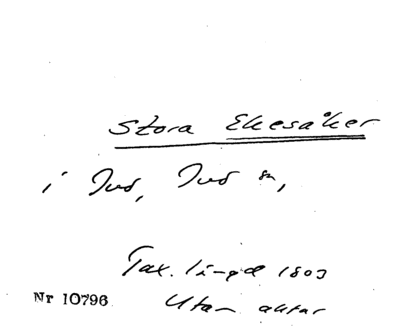 Stora Ekesåker
i Jud, Jud sn,
Tax. längd 1803
Nr 10796
Utan aktar